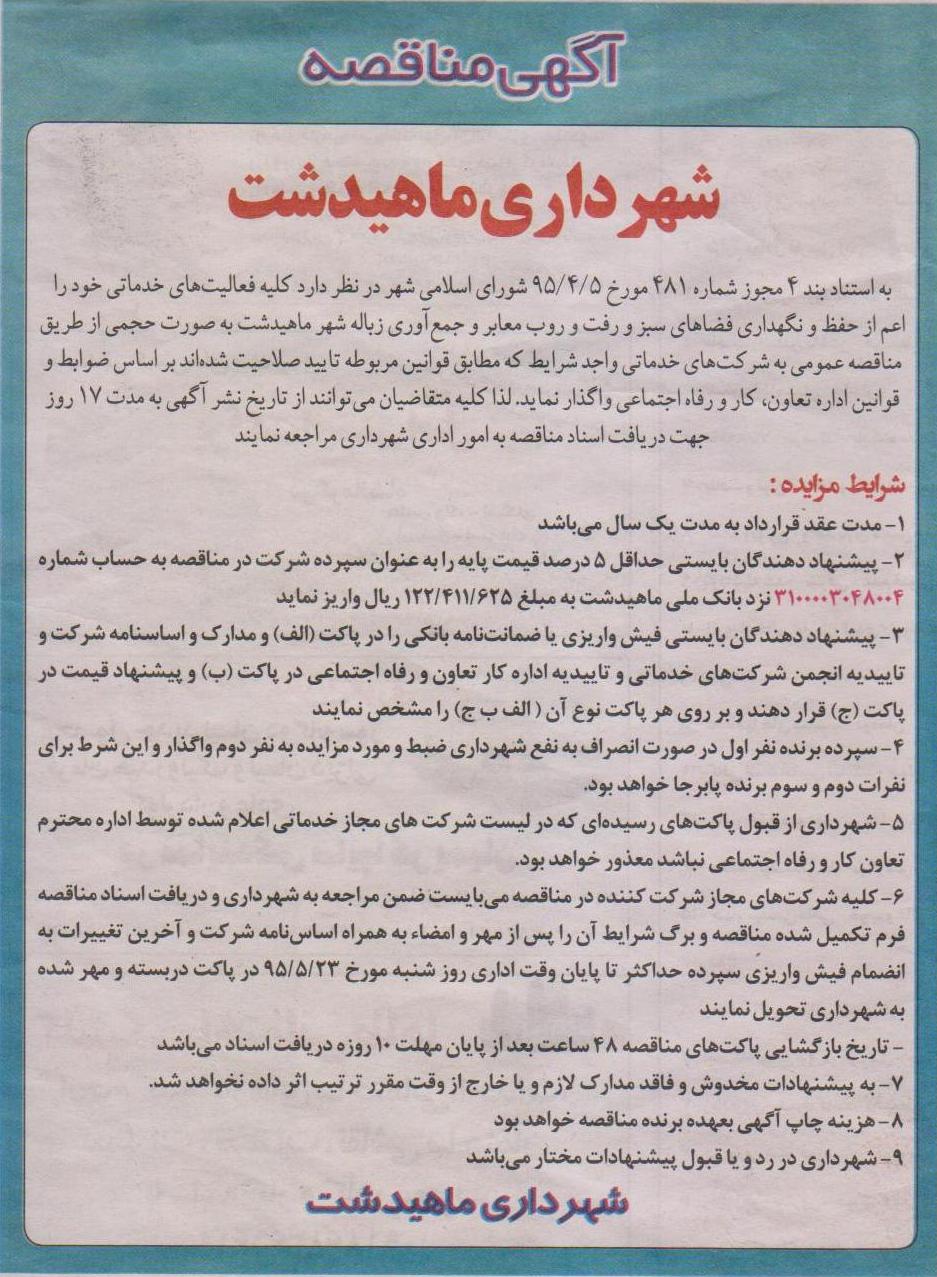 آگهی مناقصه
شهرداری ماهیدشت
به استناد بند ۴ مجوز شماره ۴۸۱ مورخ ۹۵/۴/۵ شورای اسلامی شهر در نظر دارد کلیه فعالیت‌های خدماتی خود را
اعم از حفظ و نگهداری فضاهای سبز و رفت و روب معابر و جمع‌آوری زباله شهر ماهیدشت به صورت حجمی از طریق
مناقصه عمومی به شرکت‌های خدماتی واجد شرایط که مطابق قوانین مربوطه تایید صلاحیت شده‌اند بر اساس ضوابط و
قوانین اداره تعاون، کار و رفاه اجتماعی واگذار نماید. لذا کلیه متقاضیان می‌توانند از تاریخ نشر آگهی به مدت ۱۷ روز
جهت دریافت اسناد مناقصه به امور اداری شهرداری مراجعه نمایند
شرایط مزایده:
۱- مدت عقد قرارداد به مدت یک سال می‌باشد
۲- پیشنهاد دهندگان بایستی حداقل ۵ درصد قیمت پایه را به عنوان سپرده شرکت در مناقصه به حساب شماره
۳۱۰۰۰۰۳۰۴۸۰۰۴ نزد بانک ملی ماهیدشت به مبلغ ۱۲۲/۴۱۱/۶۲۵ ریال واریز نماید
۳- پیشنهاد دهندگان بایستی فیش واریزی یا ضمانت‌نامه بانکی را در پاکت (الف) و مدارک و اساسنامه شرکت و
تاییدیه انجمن شرکت‌های خدماتی و تاییدیه اداره کار تعاون و رفاه اجتماعی در پاکت (ب) و پیشنهاد قیمت در
پاکت (ج) قرار دهند و بر روی هر پاکت نوع آن ( الف ب ج) را مشخص نمایند
۴- سپرده برنده نفر اول در صورت انصراف به نفع شهرداری ضبط و مورد مزایده به نفر دوم واگذار و این شرط برای
نفرات دوم و سوم برنده پابرجا خواهد بود.
۵- شهرداری از قبول پاکت‌های رسیده‌ای که در لیست شرکت های مجاز خدماتی اعلام شده توسط اداره محترم
تعاون کار و رفاه اجتماعی نباشد معذور خواهد بود.
۶- کلیه شرکت‌های مجاز شرکت کننده در مناقصه می‌بایست ضمن مراجعه به شهرداری و دریافت اسناد مناقصه
فرم تکمیل شده مناقصه و برگ شرایط آن را پس از مهر و امضاء به همراه اساس‌نامه شرکت و آخرین تغییرات به
انضمام فیش واریزی سپرده حداکثر تا پایان وقت اداری روز شنبه مورخ ۹۵/۵/۲۳ در پاکت دربسته و مهر شده
به شهرداری تحویل نمایند
- تاریخ بازگشایی پاکت‌های مناقصه ۴۸ ساعت بعد از پایان مهلت ۱۰ روزه دریافت اسناد می‌باشد
۷- به پیشنهادات مخدوش و فاقد مدارک لازم و یا خارج از وقت مقرر ترتیب اثر داده نخواهد شد.
۸- هزینه چاپ آگهی بعهده برنده مناقصه خواهد بود
۹- شهرداری در رد و یا قبول پیشنهادات مختار می‌باشد
شهرداری ماهیدشت